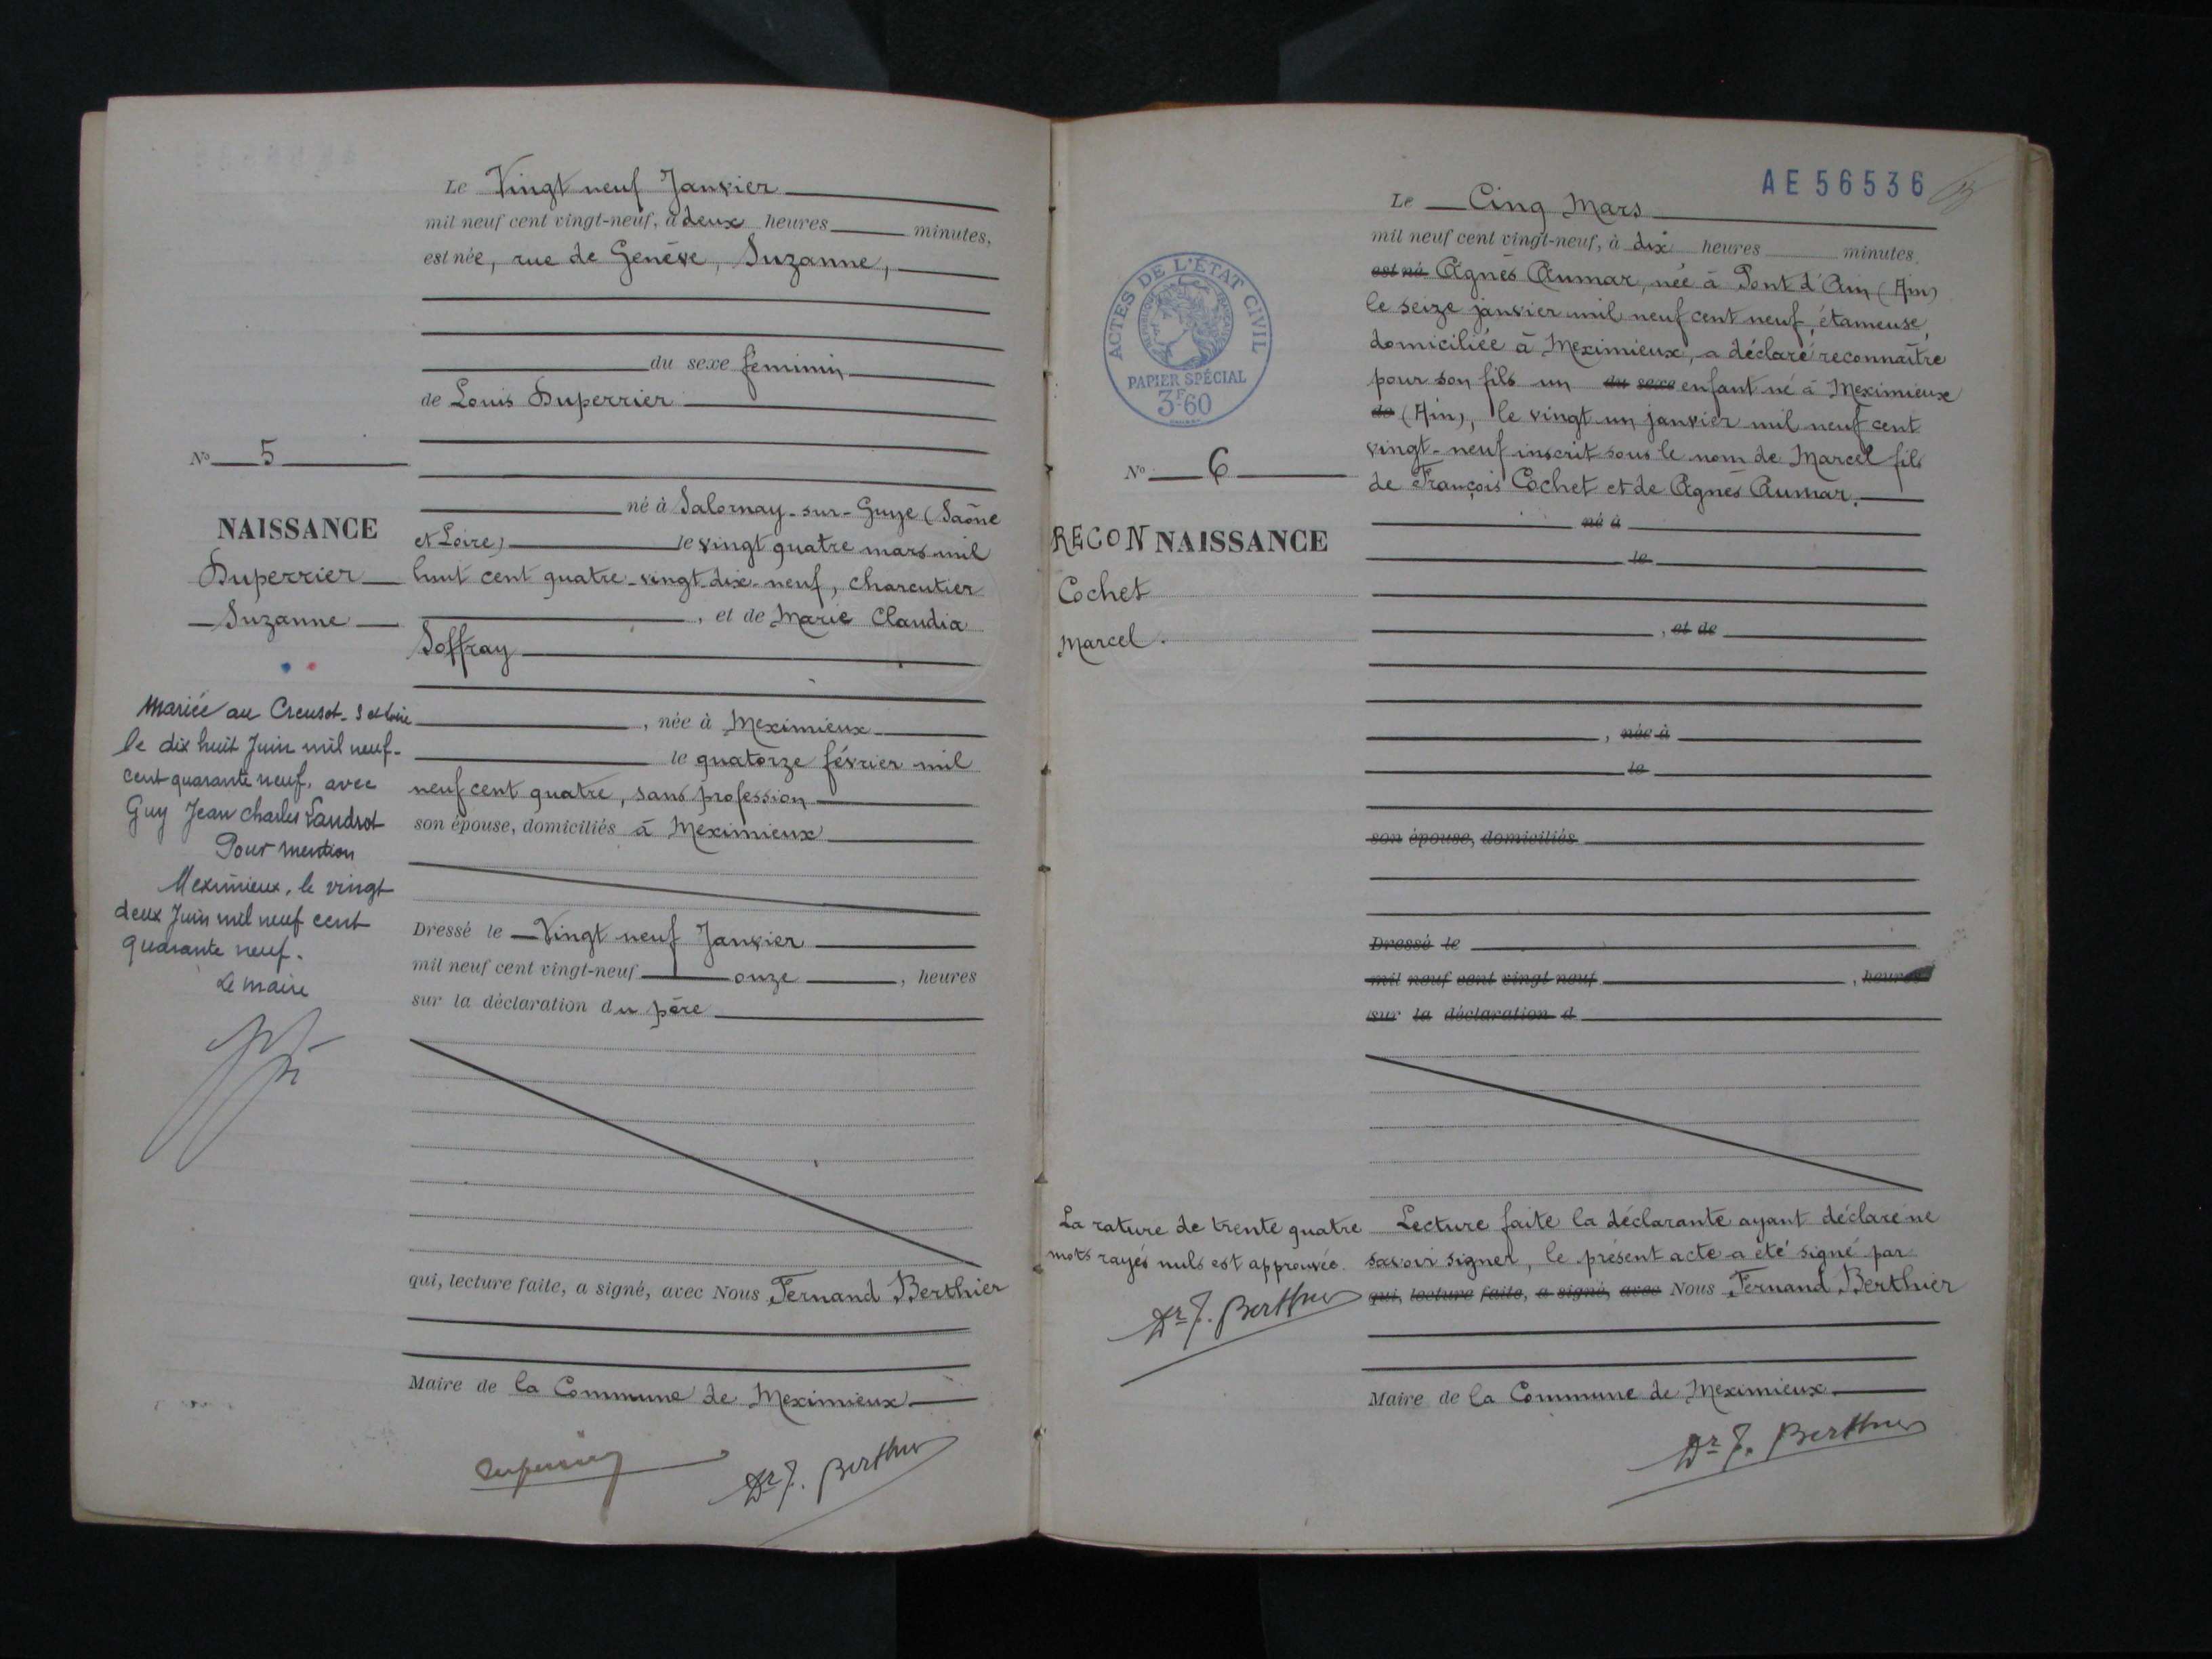 Le Vingt neuf Janvier
mil neuf cent vingt-neuf, à deux heures minutes,
est née, rue de Genève, Suzanne,
du sexe féminin
de Louis Duperrier
né à Salornay-sur-Guye (Saône
et Loire) le vingt quatre mars mil
huit cent quatre-vingt-dix-neuf, charcutier
, et de Marie Claudia
Joffray
, née à Meximieux
le quatorze février mil
neuf cent quatre, sans profession
son épouse, domiciliés à Meximieux
Dressé le Vingt neuf Janvier
mil neuf cent vingt-neuf onze , heures
sur la déclaration du père
qui, lecture faite, a signé, avec Nous Fernand Berthier
Maire de la Commune de Meximieux
Duperrier
Dr F. Berthier
No 5
NAISSANCE
Duperrier
Suzanne
Mariée au Creusot - S et Loire
le dix huit Juin mil neuf-
cent quarante neuf, avec
Guy Jean Charles Landrot
Pour mention
Meximieux, le vingt
deux Juin mil neuf cent
quarante neuf.
Le maire
AE 56536
Le Cinq Mars
mil neuf cent vingt-neuf, à dix heures minutes.
est né Agnès Aumar, née à Pont d'Ain (Ain)
le seize janvier mil neuf cent neuf, étameuse,
domiciliée à Meximieux, a déclaré reconnaître
pour son fils un du sexe enfant né à Meximieux
de (Ain), le vingt un janvier mil neuf cent
vingt-neuf inscrit sous le nom de Marcel fils
de François Cochet et de Agnès Aumar.
né à
le
, et de
, née à
le
son épouse, domiciliés
Dressé le
mil neuf cent vingt-neuf , heures
sur la déclaration d
Lecture faite la déclarante ayant déclaré ne
savoir signer, le présent acte a été signé par
qui, lecture faite, a signé, avec Nous Fernand Berthier
Maire de la Commune de Meximieux
Dr F. Berthier
ACTES DE L'ÉTAT CIVIL
PAPIER SPÉCIAL
3F.60
No 6
RECONNAISSANCE
Cochet
Marcel.
La rature de trente quatre
mots rayés nuls est approuvée.
Dr F. Berthier